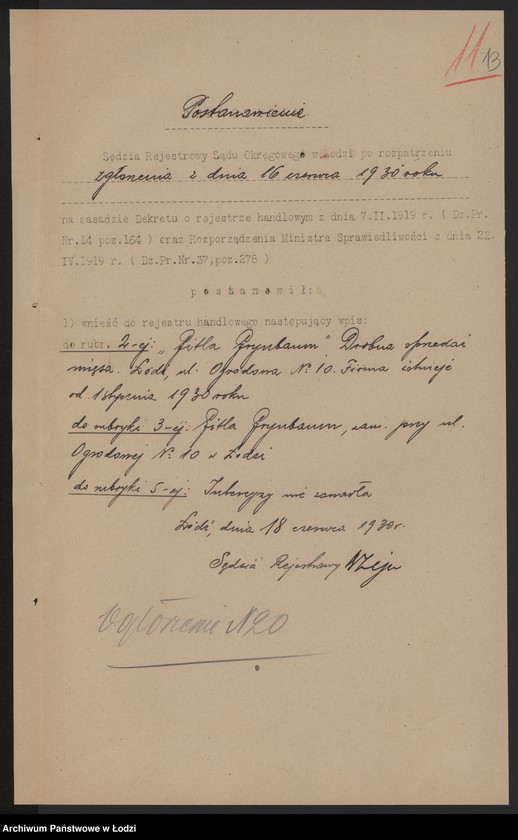 11
13
Postanowienie
Sędzia Rejestrowy Sądu Okręgowego w Łodzi po rozpatrzeniu
zgłoszenia z dnia 16 czerwca 1930 roku
na zasadzie Dekretu o rejestrze handlowym z dnia 7.II.1919 r. ( Dz.Pr.
Nr.14 poz.164 ) oraz Rozporządzenia Ministra Sprawiedliwości z dnia 22.
IV.1919 r. ( Dz.Pr.Nr.37,poz.278 )
p o s t a n o w i ł :
1) wnieść do rejestru handlowego następujący wpis:
do rubr. 2-ej: „Gitla Grynbaum”. Drobna sprzedaż
mięsa. Łódź, ul. Ogrodowa № 10. Firma istnieje
od 1 stycznia 1930 roku
do rubryki 3-ej: Gitla Grynbaum, zam. przy ul.
Ogrodowej № 10 w Łodzi
do rubryki 5-ej: Intercyzy nie zawarła
Łódź, dnia 18 czerwca 1930 r.
Sędzia Rejestrowy
Ogłoszenie N20
Archiwum Państwowe w Łodzi